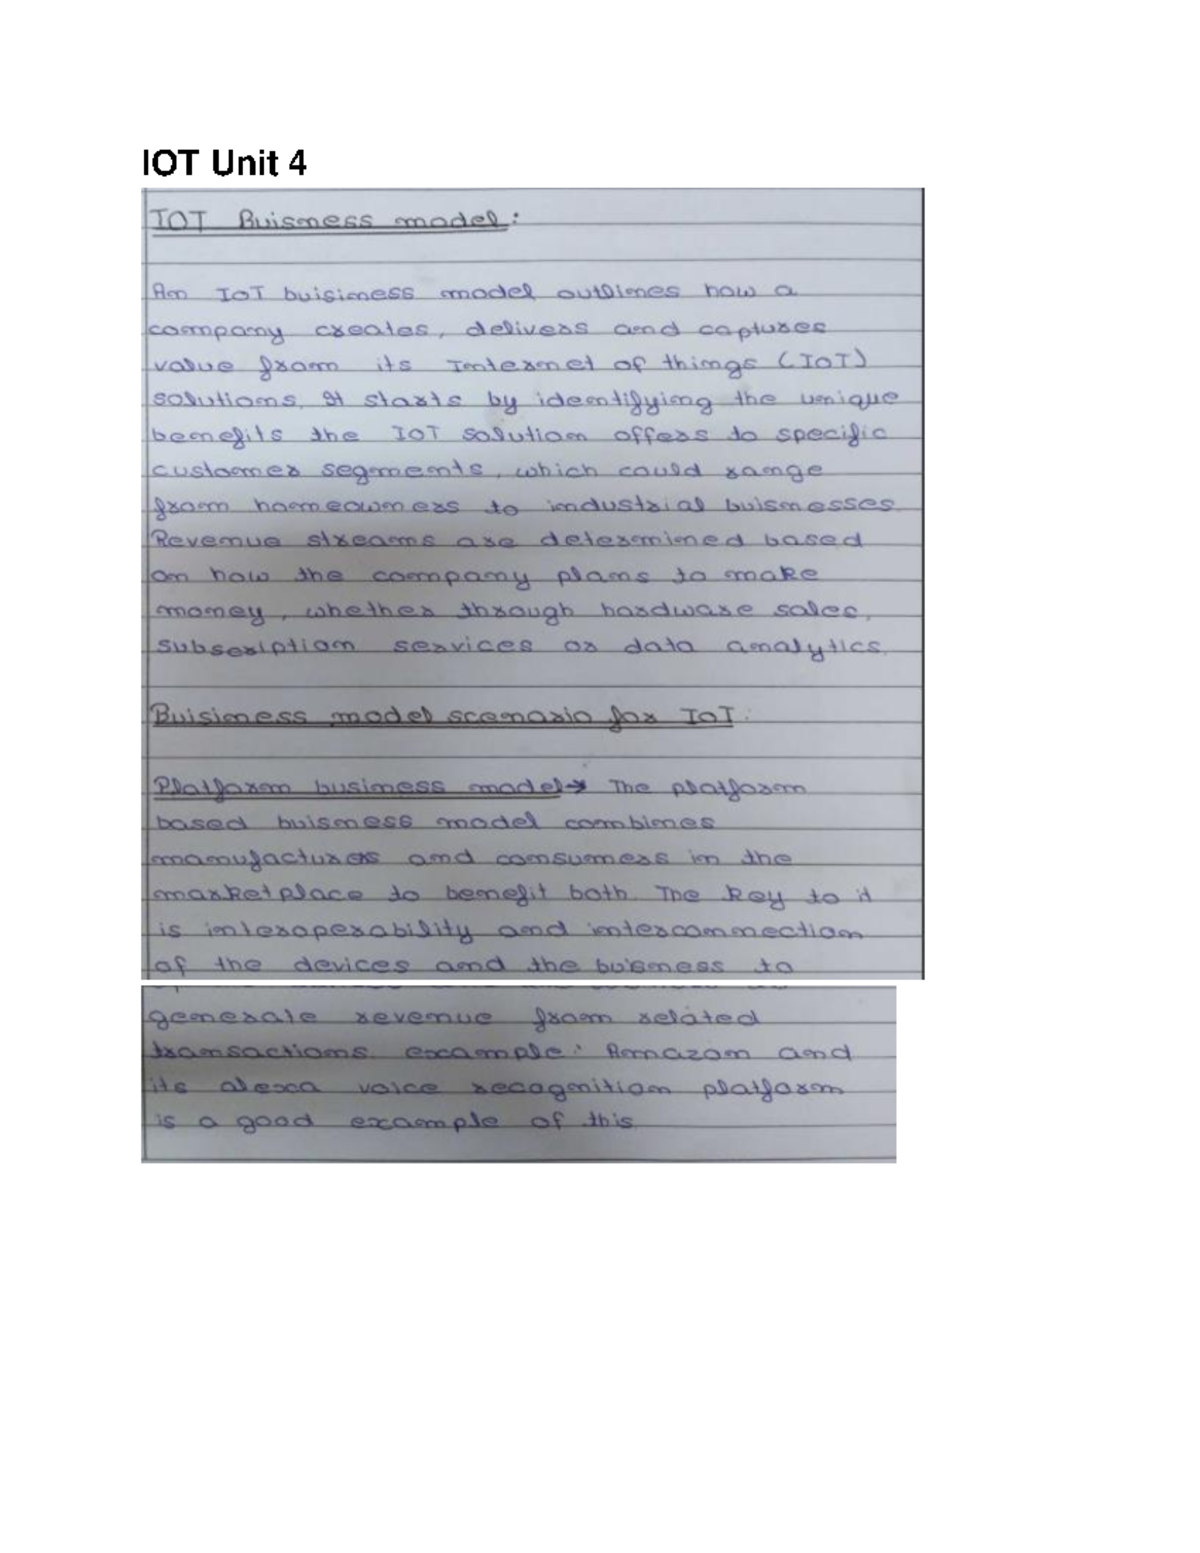 IOT Unit 4
IOT Buisness model:
An IoT buisiness model outlines how a
company creates, delivers and captures
value from its Internet of things (IoT)
solutions. It starts by identifying the unique
benefits the IOT solution offers to specific
customer segments, which could range
from homeowners to industrial buisnesses.
Revenue streams are determined based
on how the company plans to make
money, whether through hardware sales,
subscription services or data analytics.
Buisiness model scenario for IoT:
Platform business model → The platform
based buisness model combines
manufacturers and consumers in the
marketplace to benefit both. The key to it
is interoperability and interconnection
of the devices and the buisness to
generate revenue from related
transactions. example: Amazon and
its alexa voice recognition platform
is a good example of this